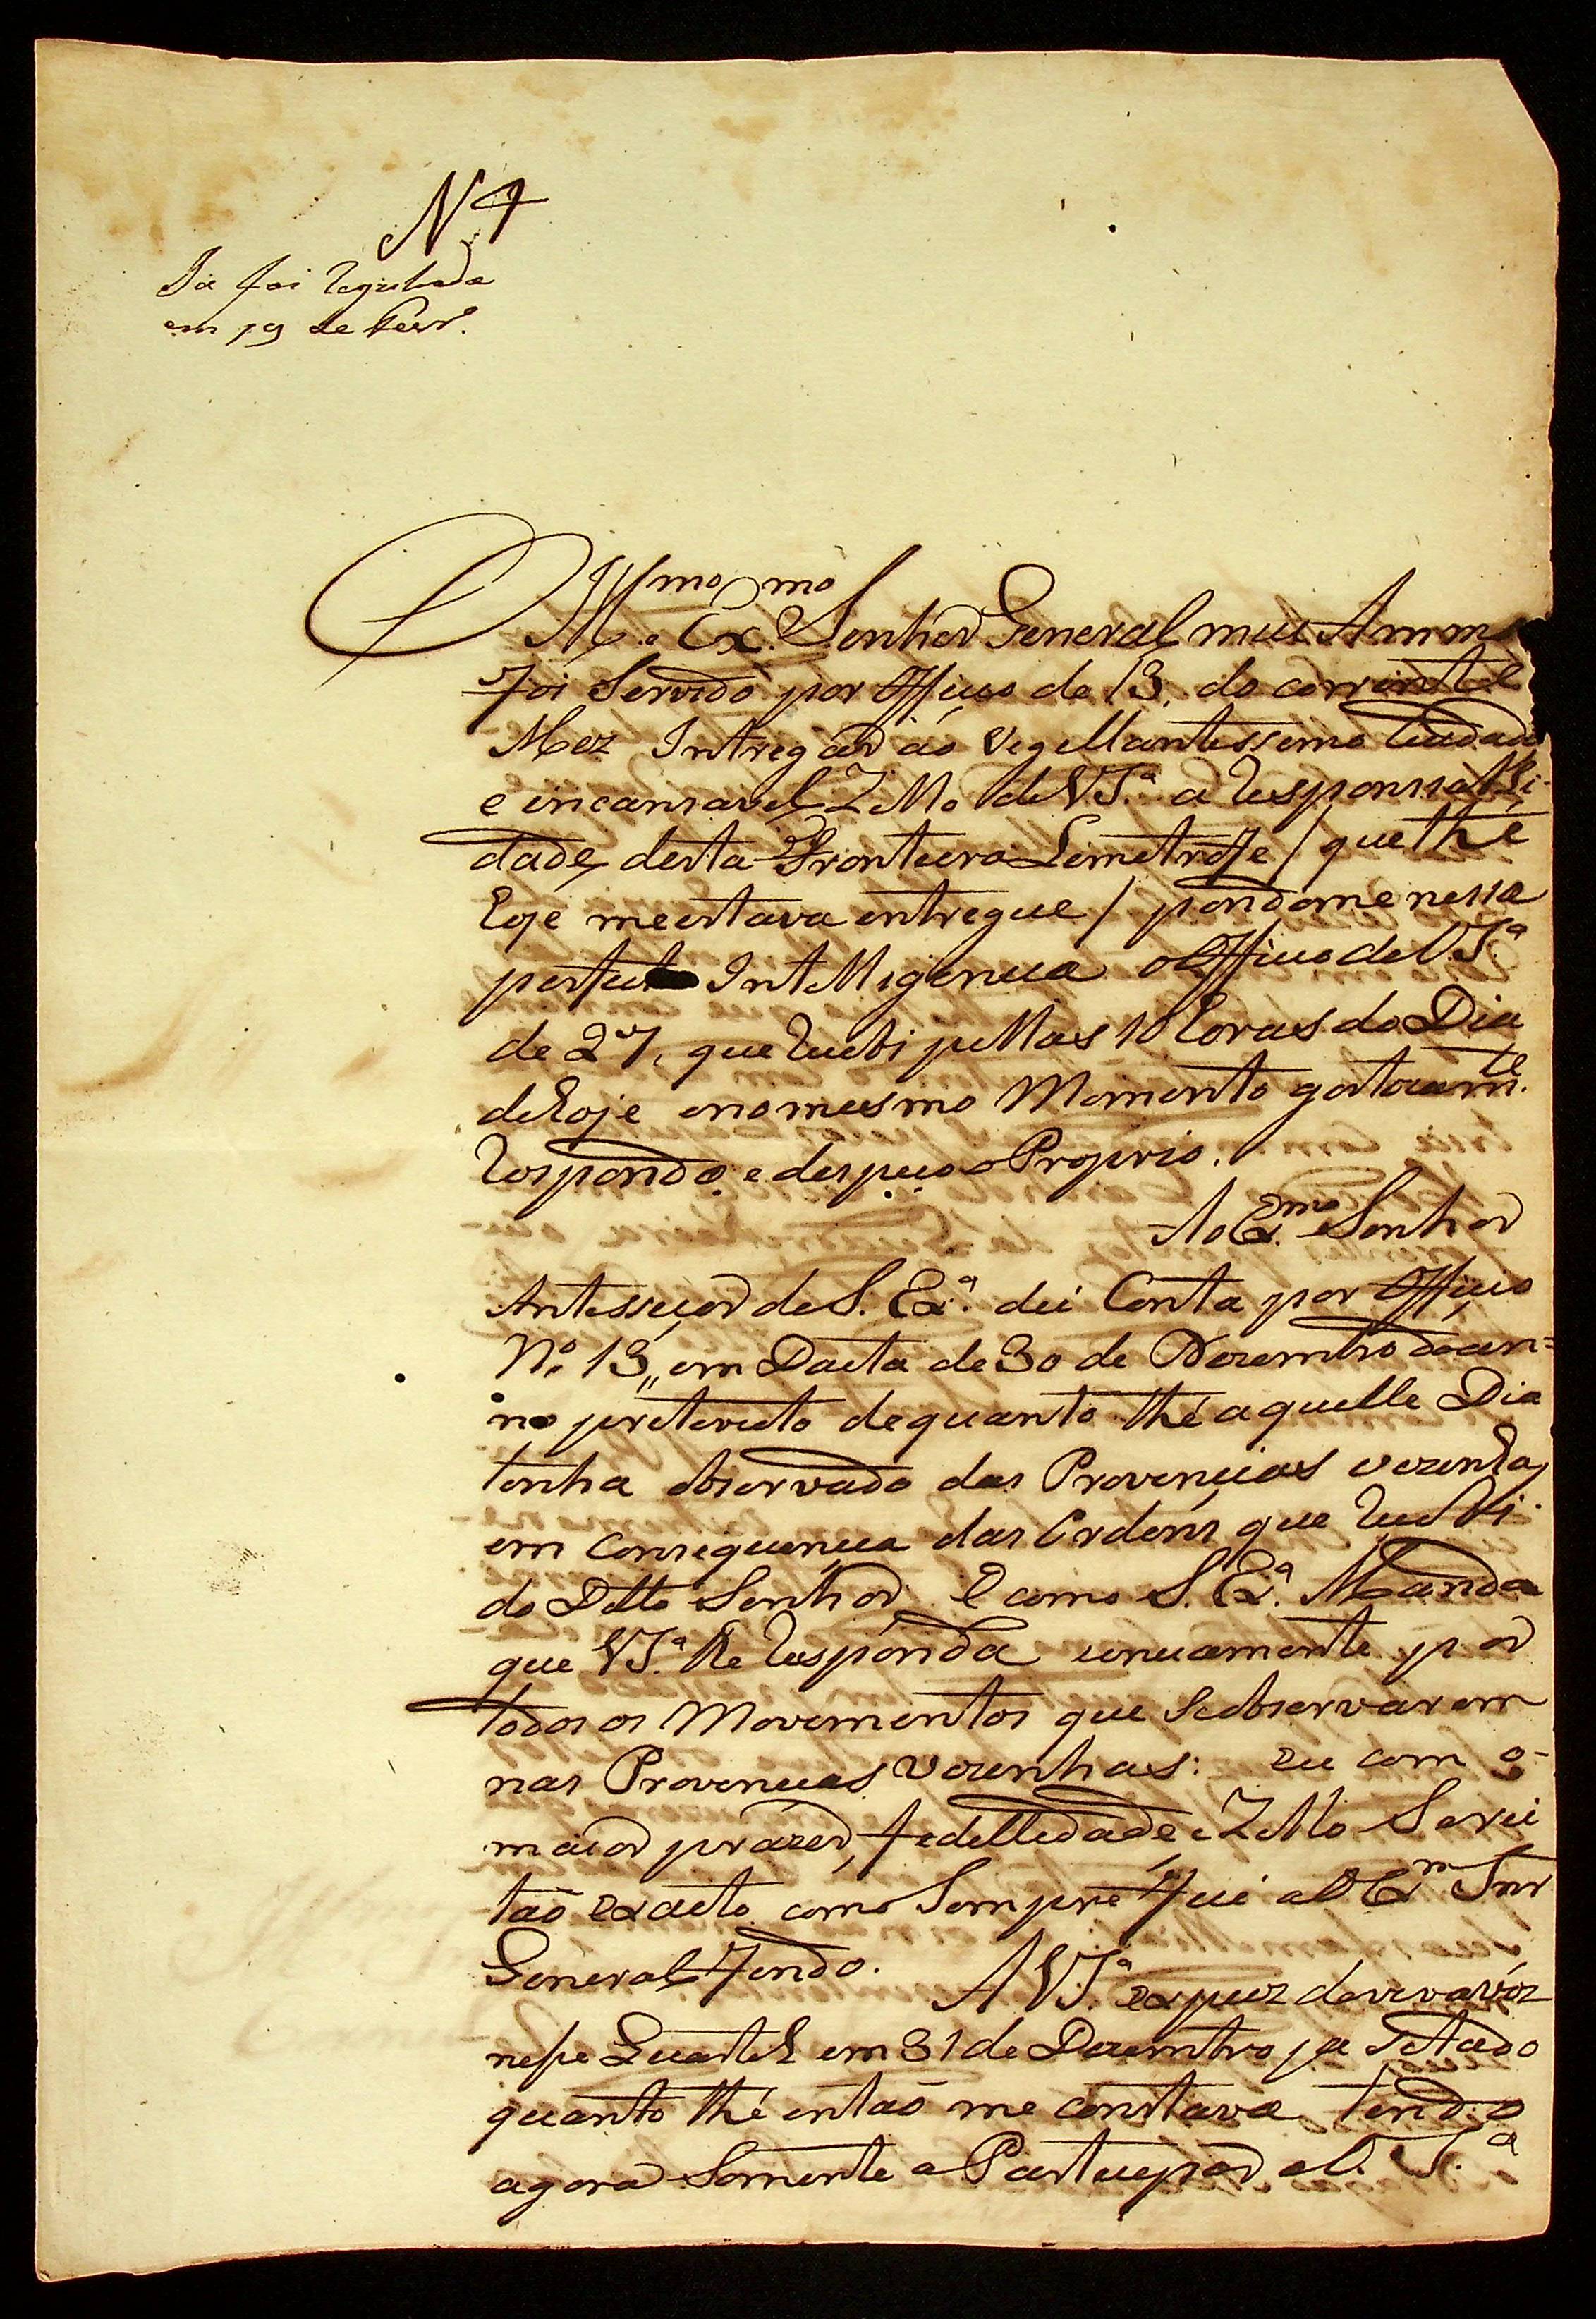 N 4
Ja foi
em 19 de Fevr.º
O Illmo. Exmo. Senhor General meu Ammo
Foi Servido por Officio de 13, do corrente
Mez Intregar ao Vegellantessemo Cuidado
e incansavel Zello de VSª a responsabili-
dade desta Fronteira Lemetrofe / que thé
hoje me estava entregue / pondome nessa
perfeita Intelligencia o Officio de V. Sª
de 27, que recebi pellas 10 horas do Dia
de hoje e no mesmo Momento gostozamte.
respondo, e despeço o Proprio.
Ao Exmo. Senhor
Antessecor de S. Exª. dei Conta por Officio
Nº. 13,, em Dacta de 30 de Dezembro do an=
no preterito de quanto thé aquelle Dia
tenha observado das Provencias vezenhas
em Consequencia das Ordens que recebi
do Ditto Senhor. E como S. Exª. Manda
que VSª. lhe responda unicamente por
todos os Movementos que se observarem
nas Provencias Vezenhas: eu com o
maior prazer, fedellidade, e Zello Serei
tão exacto como Sempre fui ao Exmo Snr
General Fondo. A VSª expuz de viva vóz
nesse Quartel em 31 de Dezembro
quanto thé então me constava, tendo
agora Somente a Partecipar a V. Sª